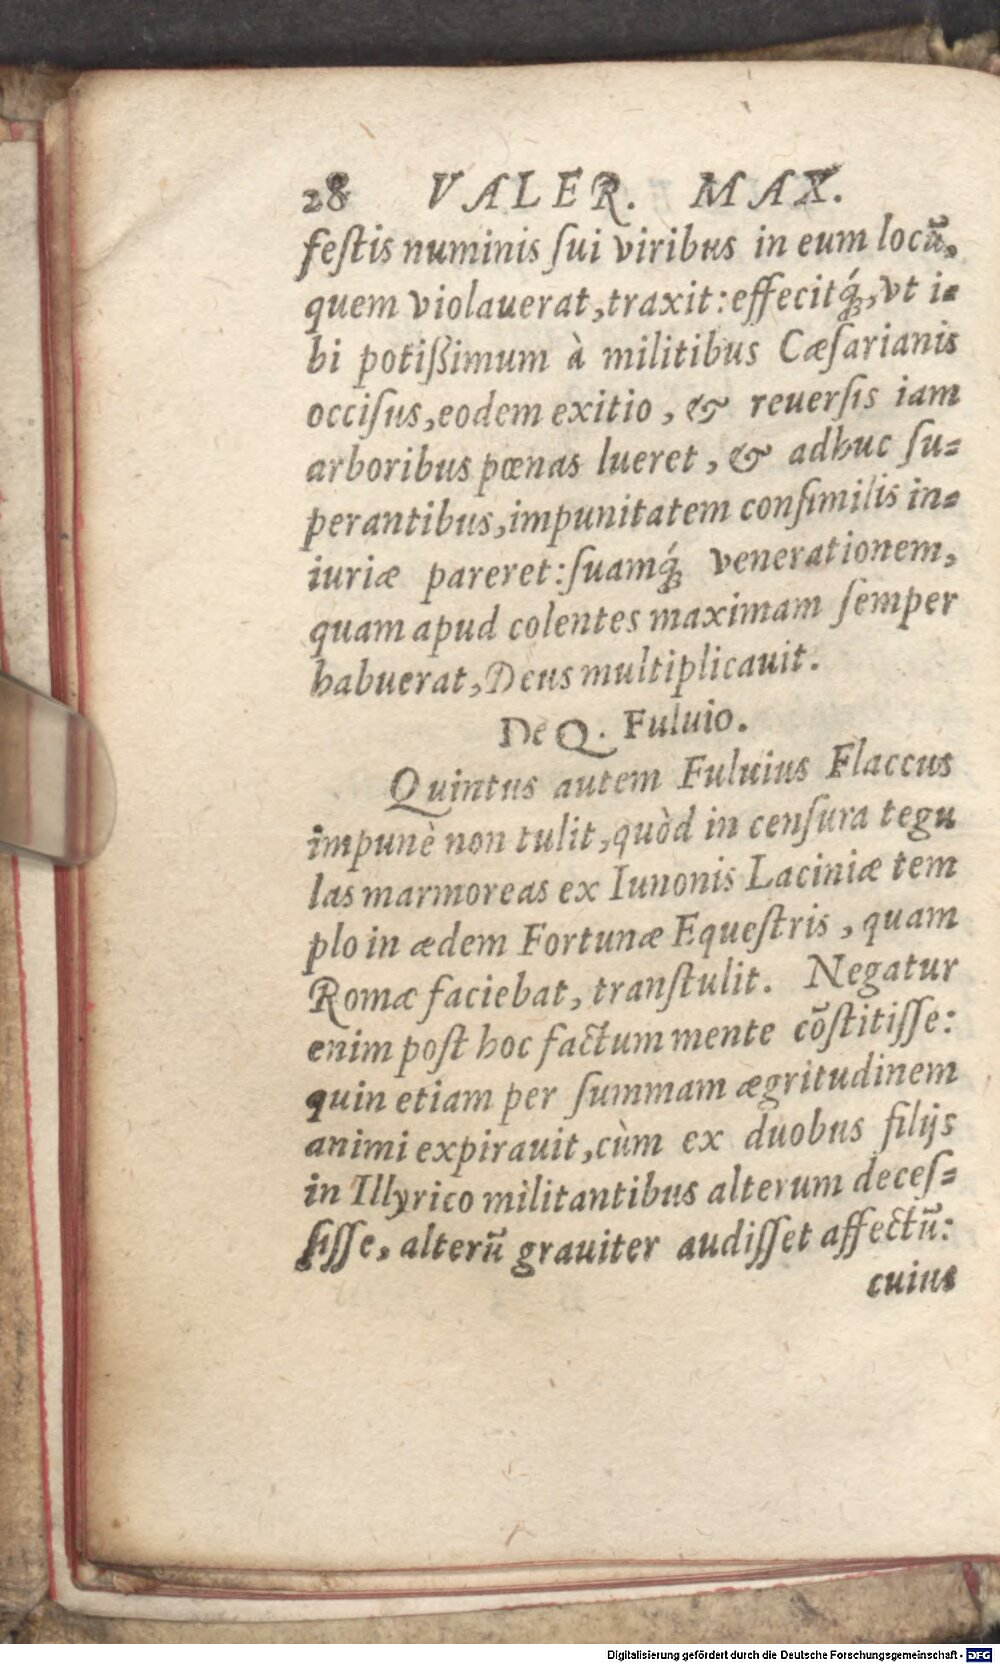 28 VALER. MAX.
festis numinis sui viribus in eum locũ,
quem violauerat, traxit: effecitq́;, vt i=
bi potißimum à militibus Cæsarianis
occisus, eodem exitio, & reuersis iam
arboribus pœnas lueret, & adhuc su=
perantibus, impunitatem consimilis in=
iuriæ pareret: suamq́; venerationem,
quam apud colentes maximam semper
habuerat, Deus multiplicauit.
De Q. Fuluio.
Quintus autem Fuluius Flaccus
impunè non tulit, quòd in censura tegu
las marmoreas ex Iunonis Laciniæ tem
plo in ædem Fortunæ Equestris, quam
Romæ faciebat, transtulit. Negatur
enim post hoc factum mente cõstitisse:
quin etiam per summam ægritudinem
animi expirauit, cùm ex duobus filijs
in Illyrico militantibus alterum deces=
sisse, alterũ grauiter audisset affectũ:
cuius
Digitalisierung gefördert durch die Deutsche Forschungsgemeinschaft - DFG